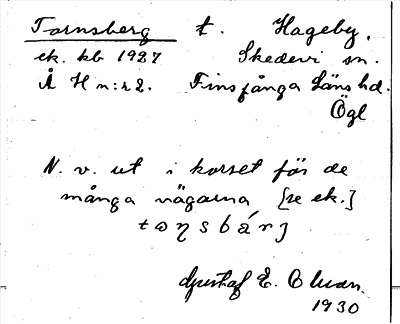 Tornsberg t. Hageby,
ek. kb 1927 Skedevi sn.
Å H n:r 2. Finspånga Läns hd.
Ögl
N. v. ut i korset för de
många vägarna [se ek.]
Gustaf E.
1930